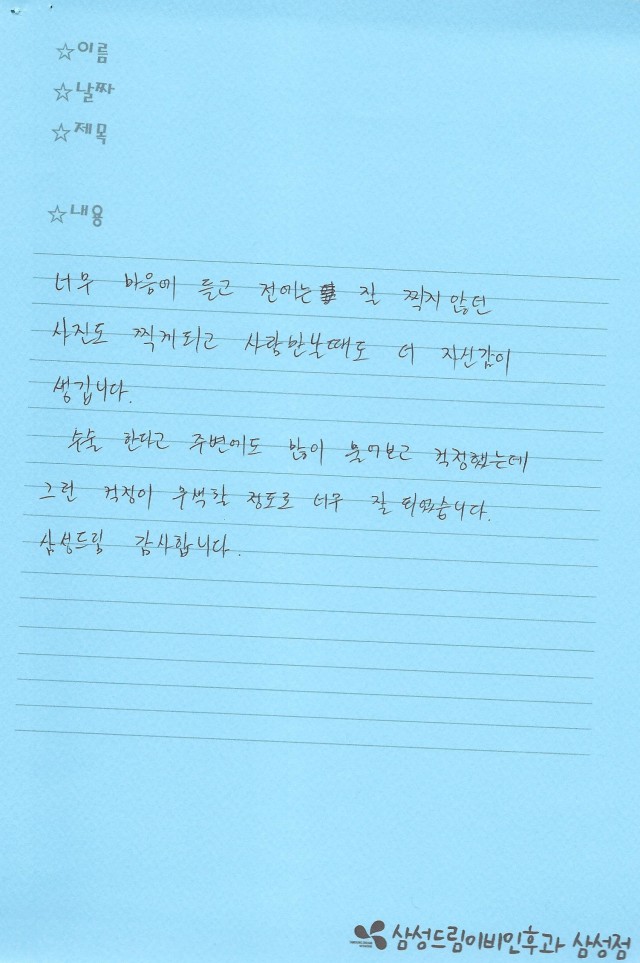 ☆이름
☆날짜
☆제목
☆내용
너무 마음에 들고 전에는 잘 찍지 않던
사진도 찍게되고 사람만날때도 더 자신감이
생깁니다.
수술 한다고 주변에도 많이 물어보고 걱정했는데
그런 걱정이 무색할 정도로 너무 잘 되었습니다.
삼성드림 감사합니다.
삼성드림이비인후과 삼성점